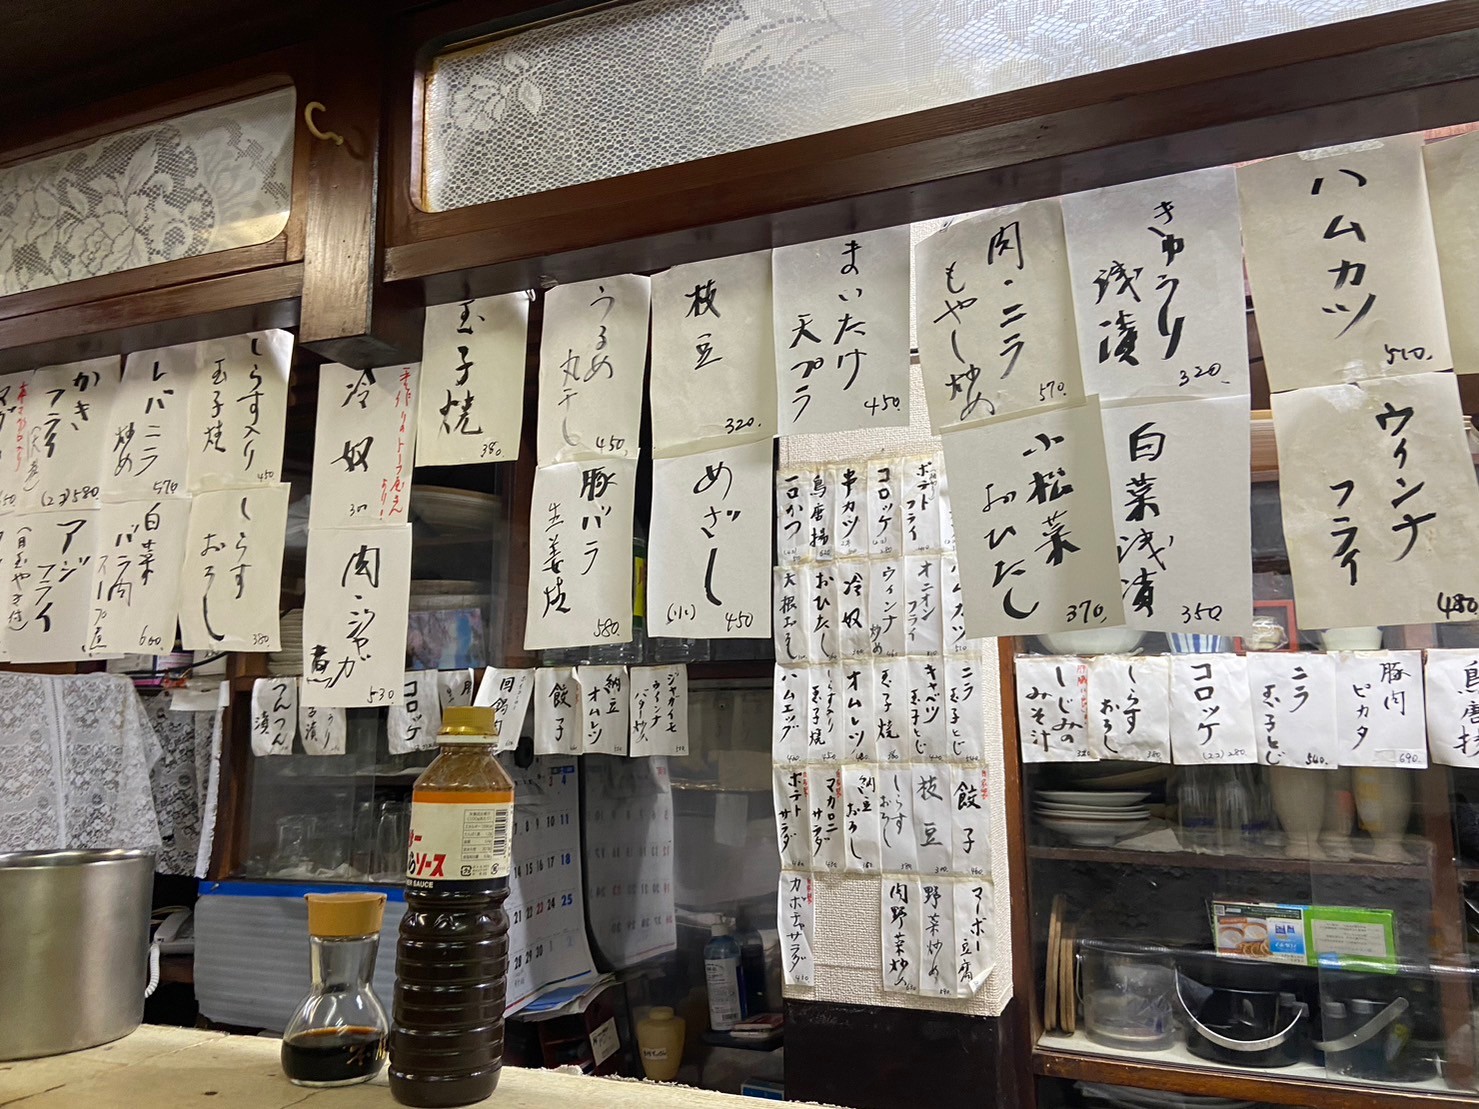 ハムカツ
510.
きゅうり
浅漬
320.
肉・ニラ
もやし炒め
570.
まいたけ
天プラ
450.
枝豆
320.
うるめ
丸干し
450.
玉子焼
380.
手作りのトーフ屋さん
より!
冷奴
しらす入り
玉子焼
450
レバニラ
炒め
570
かき
フライ
(2コ)580
ウィンナ
フライ
480.
白菜浅漬
350.
小松菜
おひたし
370.
めざし
(小)
450
豚バラ
生姜焼
580.
肉・ジャガ
煮
530
しらす
おろし
380
白菜
バラ肉
スープ煮
600
アジ
フライ
(目玉ヤキ付)
ポテト
フライ
コロッケ
串カツ
鳥唐揚
一口かつ
ハムカツ
オニオン
フライ
ウィンナ
炒め
冷奴
おひたし
大根おろし
ニラ
玉子とじ
キャベツ
玉子とじ
玉子焼
オムレツ
しらす入り
玉子焼
ハムエッグ
餃子
枝豆
しらす
おろし
納豆
おろし
マカロニ
サラダ
ポテト
サラダ
マーボー
豆腐
野菜炒め
肉野菜炒め
カボチャサラダ
豚肉
ピカタ
690.
ニラ
玉子とじ
540.
コロッケ
(2コ)280
しらす
おろし
380
しじみの
みそ汁
鳥唐揚
ジャガイモ
ウィンナ
バター炒め
納豆
オムレツ
餃子
回鍋肉
コロッケ
ソース